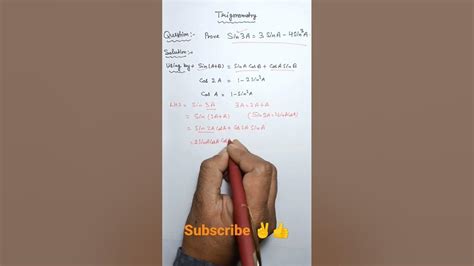 Trigonometry
Question:- Prove Sin3A = 3 SinA - 4Sin³A
Solution:-
Using by→ Sin(A+B) = SinA CosB + CosA SinB
Cos 2A = 1-2Sin²A
Cos A = 1-Sin²A
LHS = Sin 3A 3A = 2A+A
= Sin (2A+A) (Sin2A = 2SinACosA)
= Sin 2A CosA + Cos 2A SinA
= 2SinACosA Cos
Subscribe ✌👍